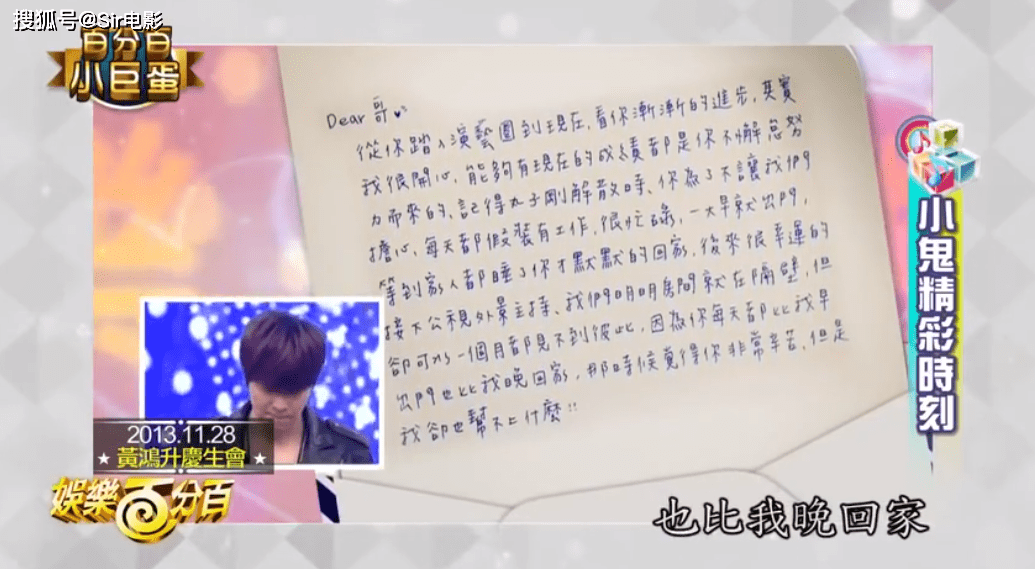 搜狐号@Sir电影
百分百
小巨蛋
Dear 哥
從你踏入演藝圈到現在,看你漸漸的進步,其實
我很開心,能夠有現在的成績都是你不懈怠努
力而來的、記得丸子剛解散時、你為了不讓我們
擔心,每天都假裝有工作,很忙碌,一大早就出門,
等到家人都睡了你才默默的回家,後來很幸運的
接下公視外景主持、我們明明房間就在隔壁,但
卻可以一個月都見不到彼此,因為你每天都比我早
出門也比我晚回家,那時候覺得你非常辛苦,但是
我卻也幫不上什麼!!
小鬼精彩時刻
2013.11.28
★黃鴻升慶生會★
娛樂百分百
也比我晚回家